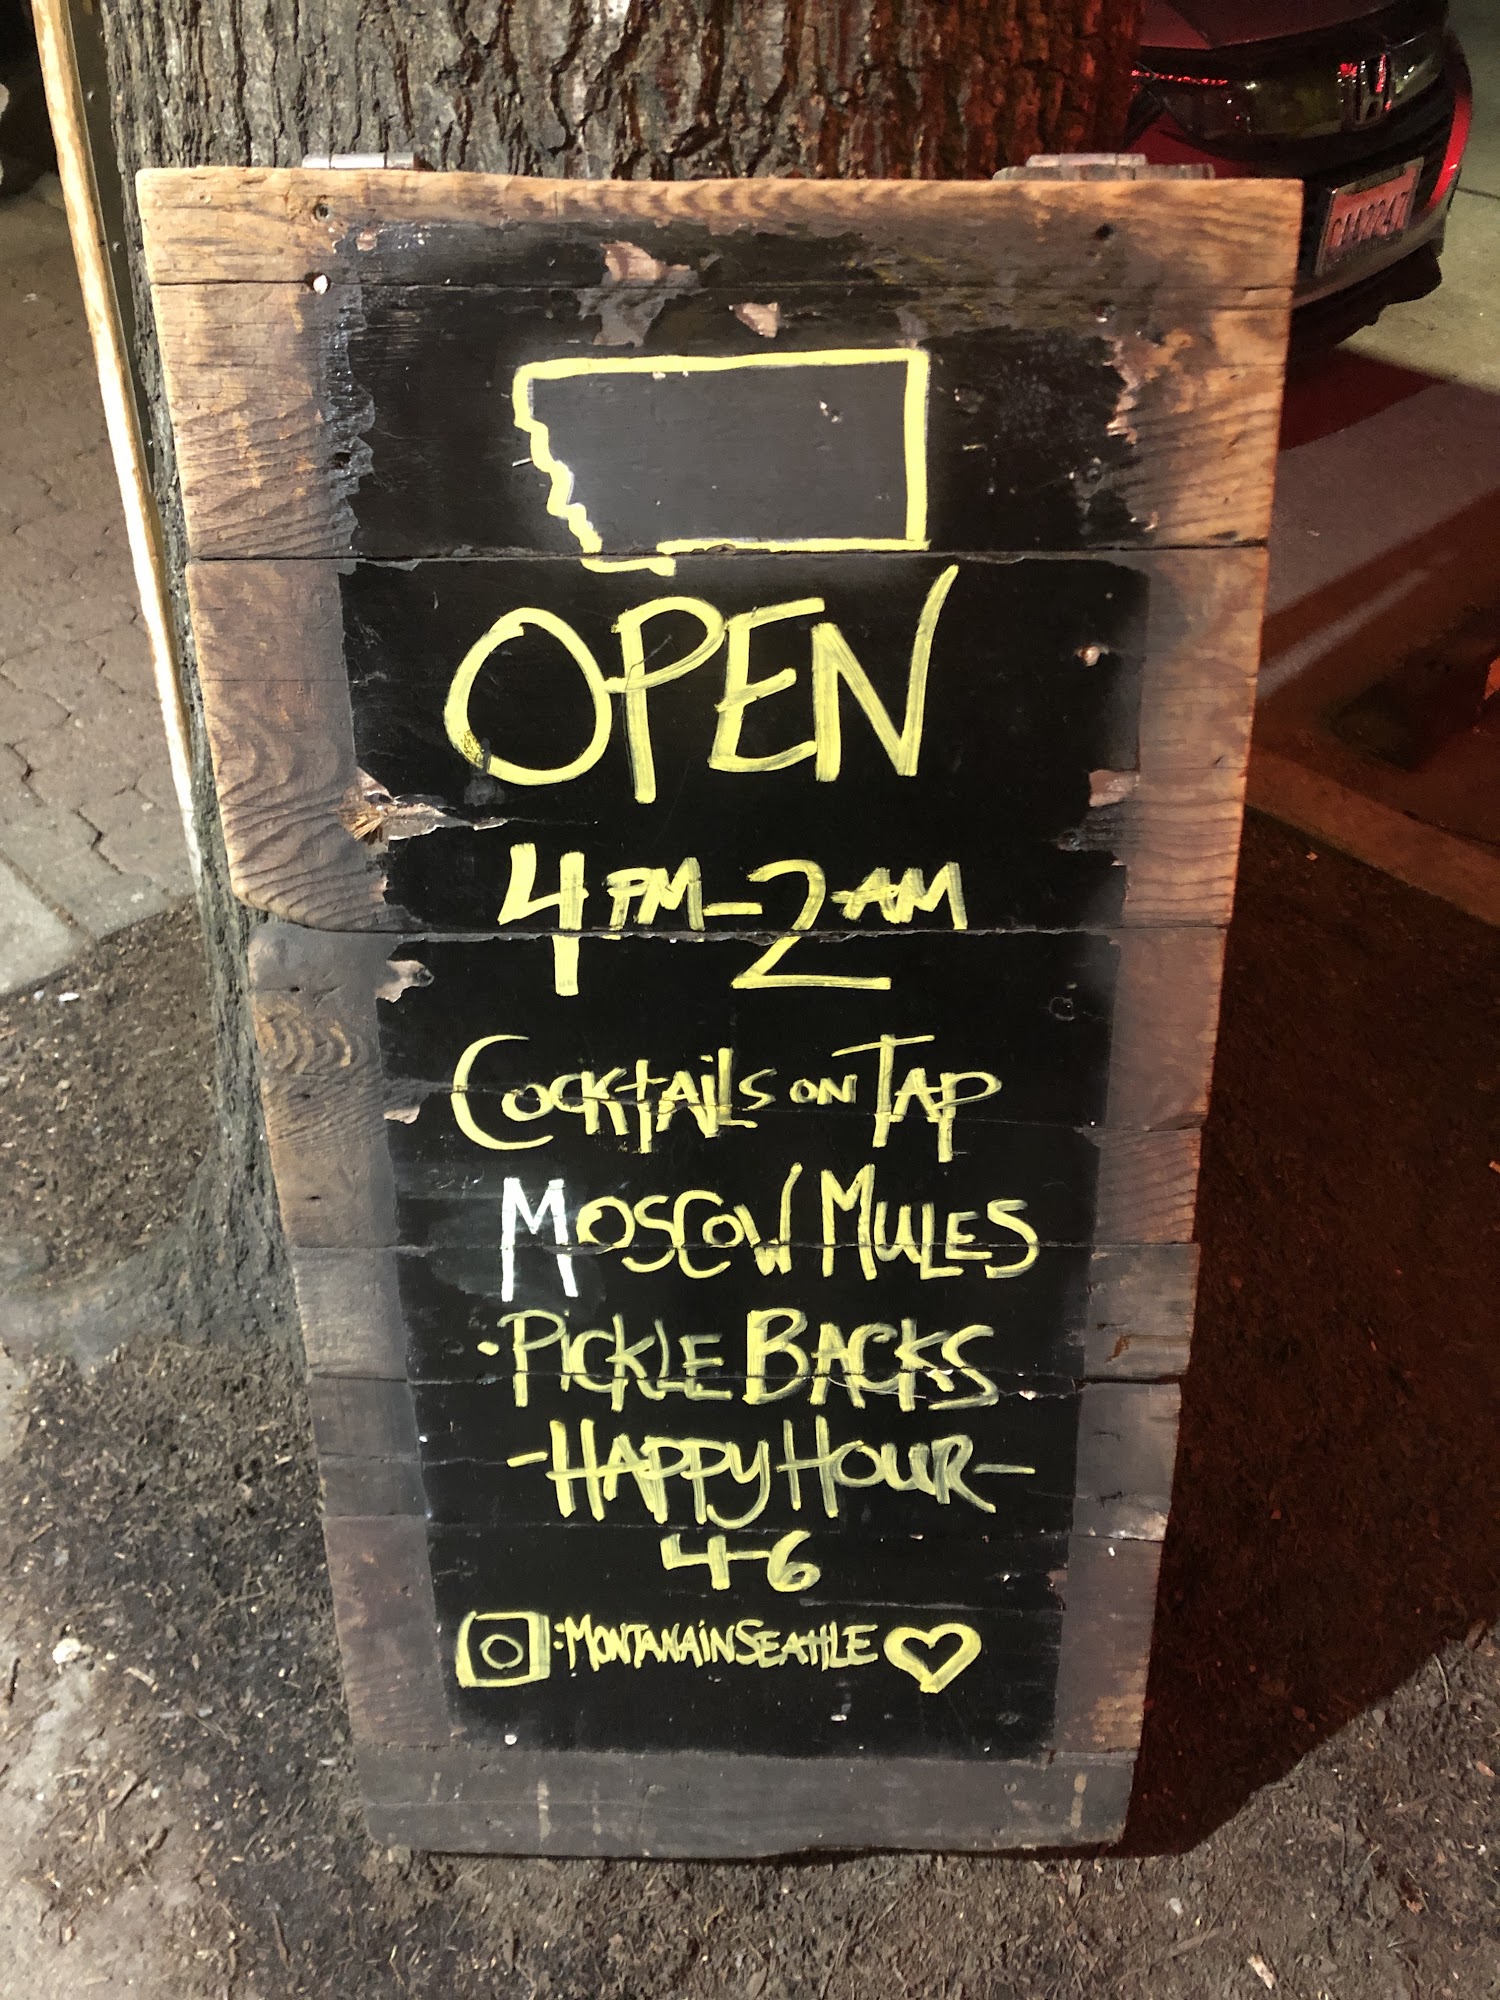 OPEN
4PM-2AM
COCKTAILS ON TAP
MOSCOW MULES
·PICKLE BACKS
-HAPPY HOUR-
4-6
:MONTANAINSEATTLE